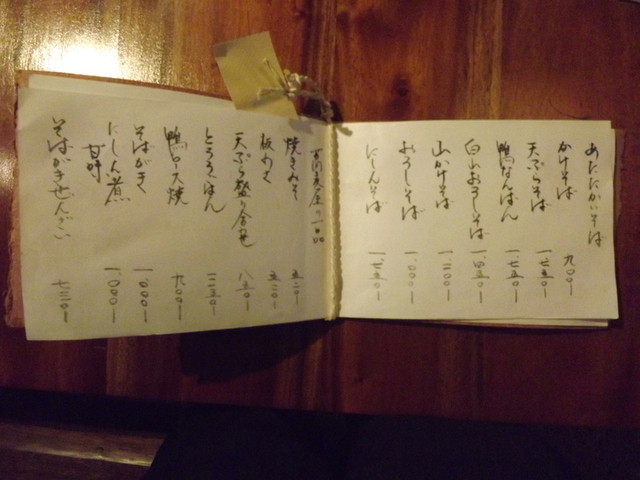 あたたかいそば
かけそば 九〇〇ー
天ぷらそば 一、七五〇ー
鴨なんばん 一、七五〇ー
白山おろしそば 一、四五〇ー
山かけそば 一、二〇〇ー
おろしそば 一、〇〇〇ー
にしんそば 一、七五〇ー
の一品
焼きみそ 五二〇ー
板わさ 五二〇ー
天ぷら盛り合せ 八五〇ー
とろろごはん 三五〇ー
鴨ロース焼 九〇〇ー
そばがき 一、〇〇〇ー
にしん煮 一、〇〇〇ー
甘味
そばがきぜんざい 七三〇ー